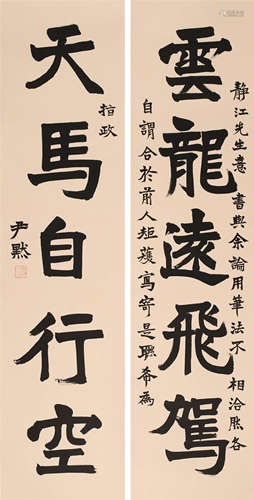 雲龍遠飛駕
靜江先生意書與余論用筆法不相洽然各
自謂合於前人矩蒦寫寄是聯希為
天馬自行空
指政
尹默